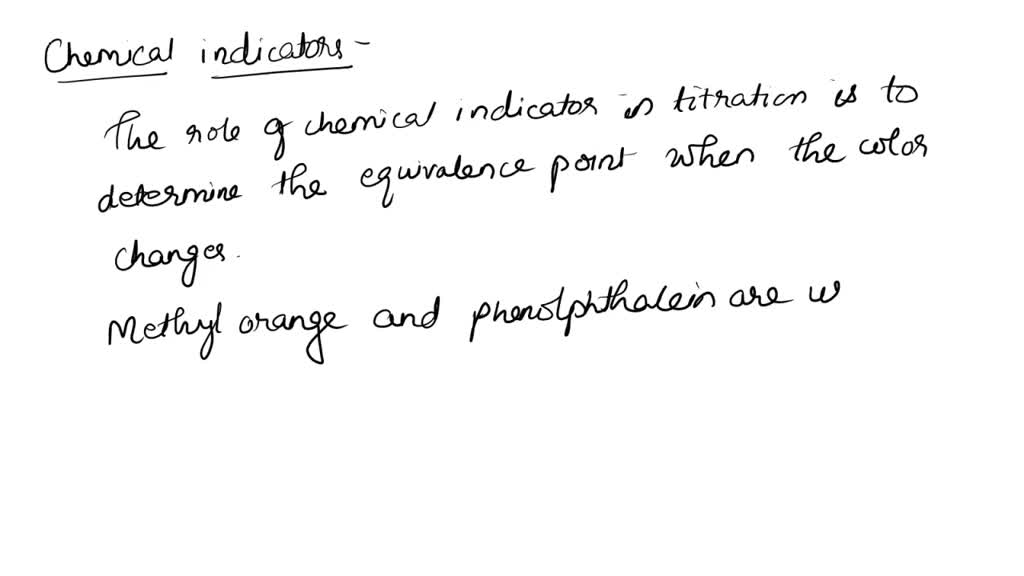 Chemical indicators -
The role of chemical indicator in titration is to
determine the equivalence point when the color
changes.
Methyl orange and phenolphthalein are w